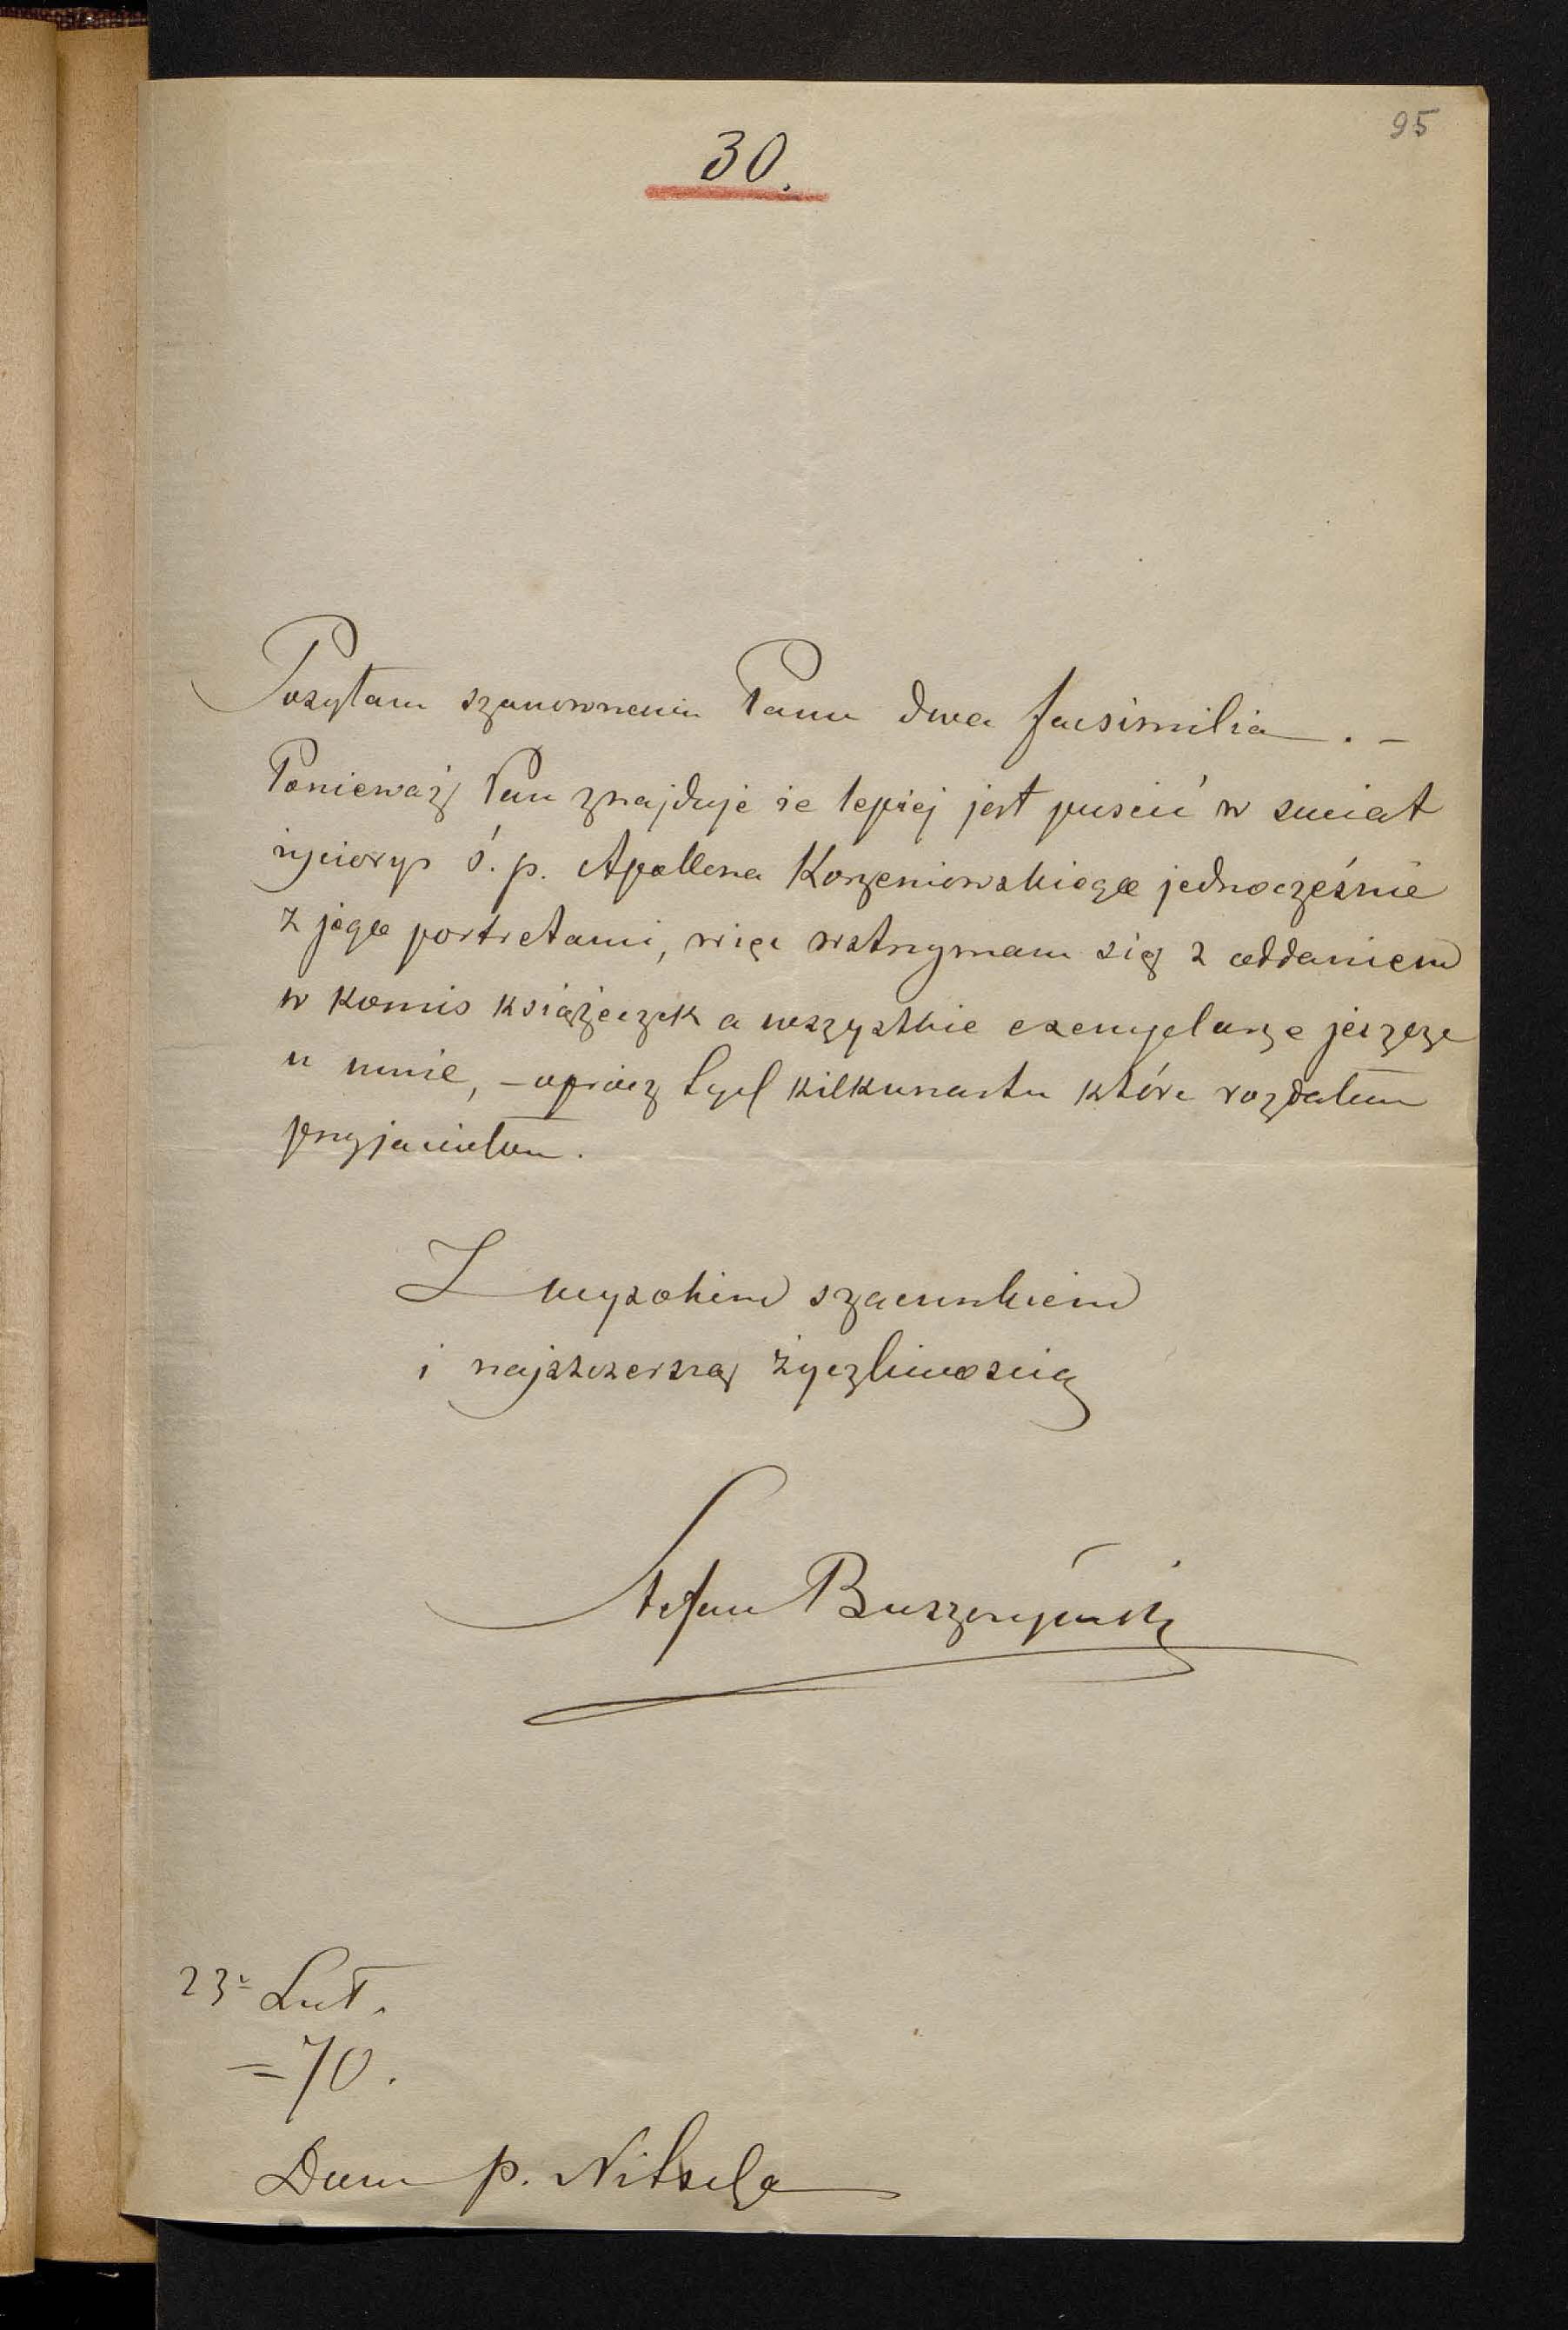 95
30.
Posyłam szanownemu Panu dwa facsimilia. –
Ponieważ Pan znajduje że lepiej jest puścić w świat
życiorys ś. p. Apollona Korzeniowskiego jednocześnie
z jego portretami, więc wstrzymam się z oddaniem
w komis książeczek a wszystkie exemplarze jeszcze
u mnie, – oprócz tych kilkunastu które rozdałem
przyjaciołom.
Z wysokim szacunkiem
i najszczerszą życzliwością
Stefan Buszczyński
23 Lut.
= 70.
Dom p. Nitscha